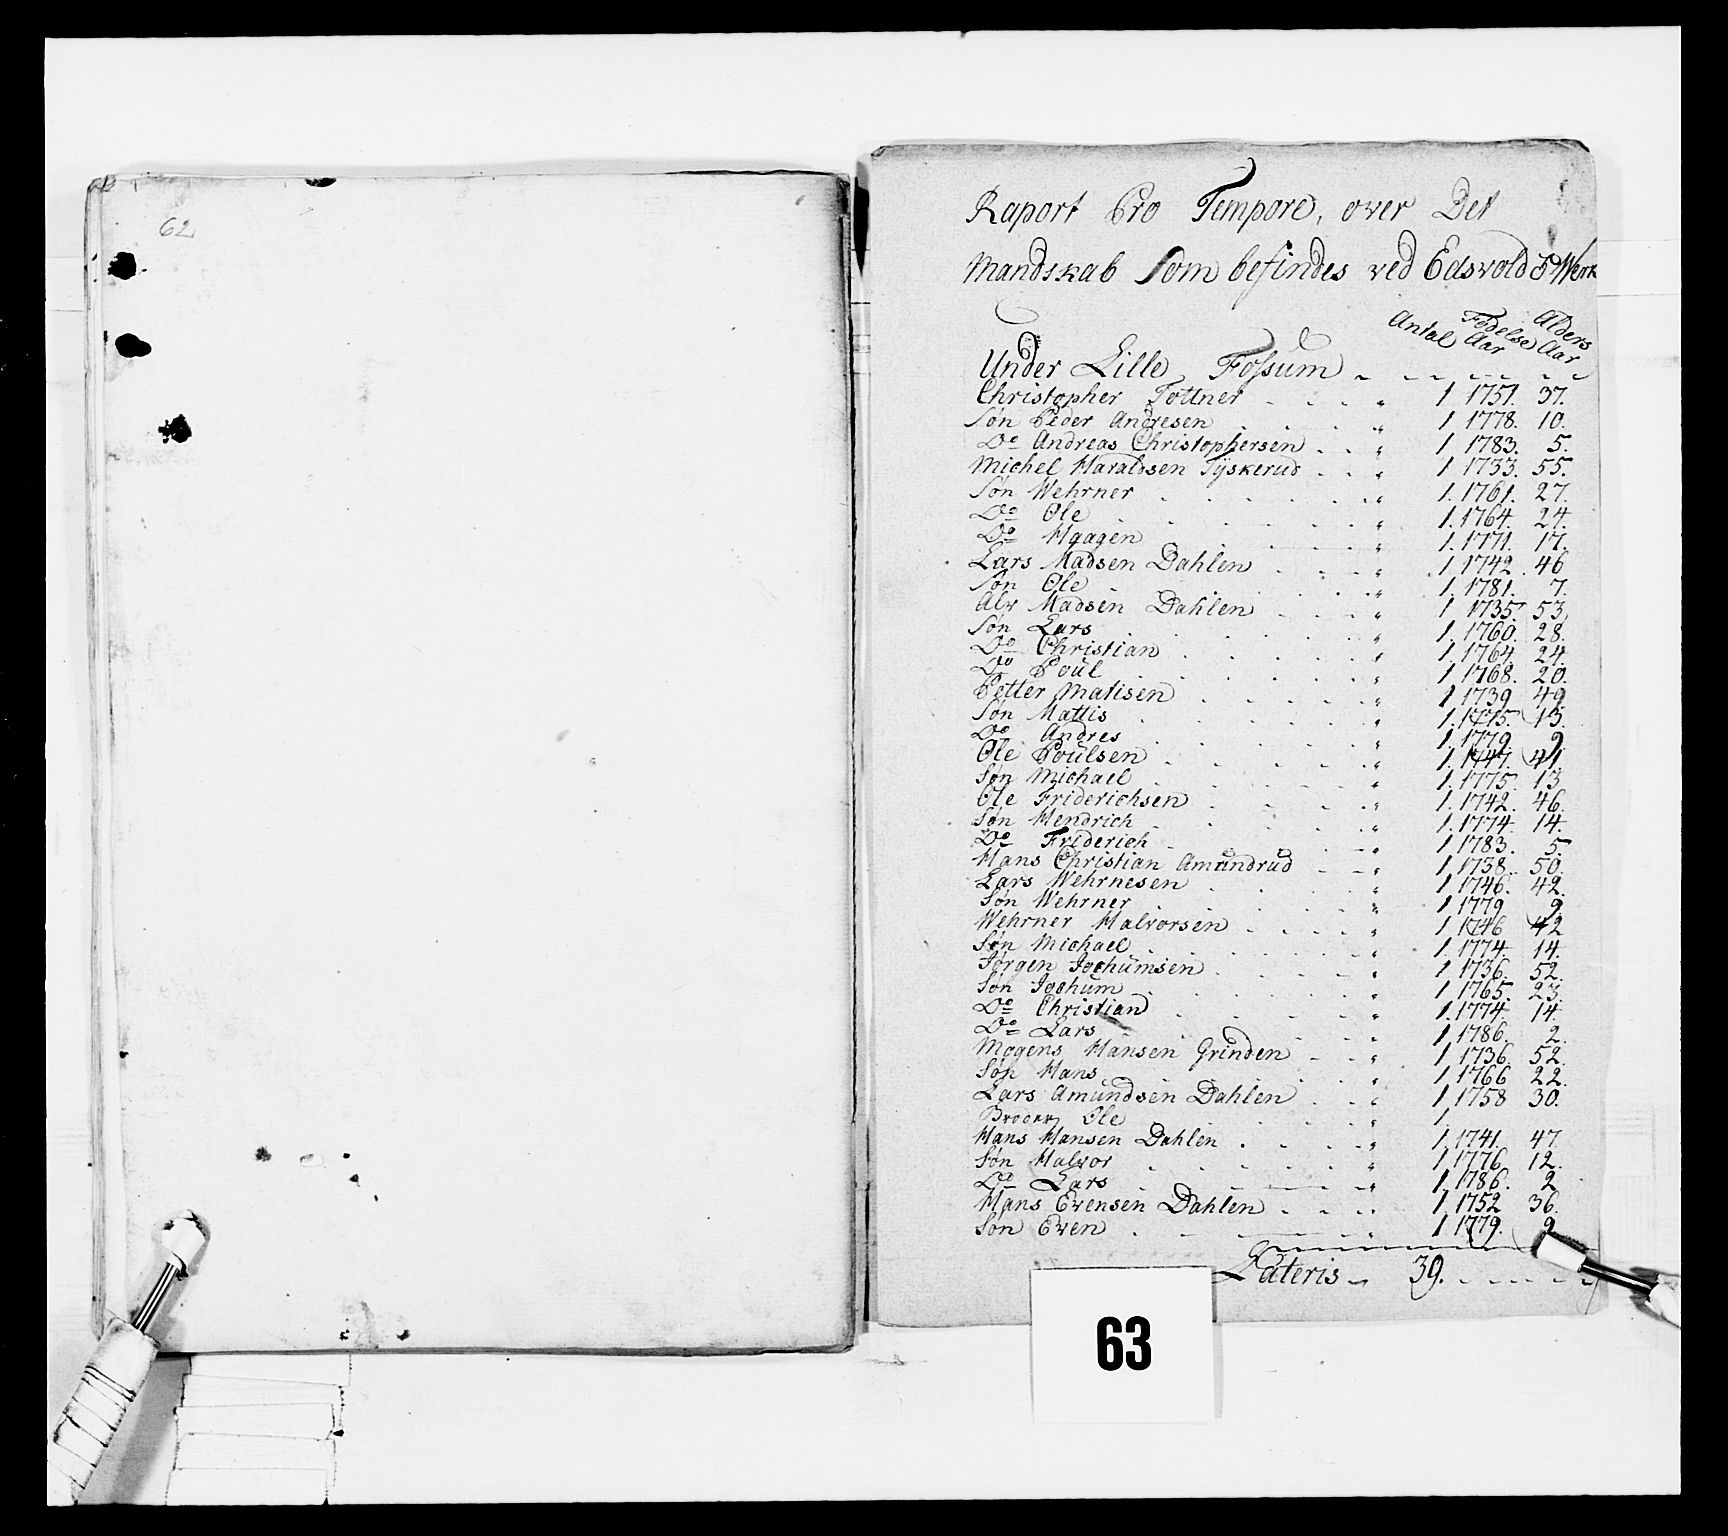 62
Raport Pro Tempore, over Det
Mandskab som befindes ved Edsvolds Werk
Antal Fødelse Aar Alders Aar
Under Lille Fossum
Christopher Tottner 1 1751. 37.
Søn Peder Andresen 1 1778. 10.
Do Andreas Christophersen 1 1783. 5.
Michel Haraldsen Tÿskerud 1 1733. 55.
Søn Wehrner 1. 1761. 27.
Do Ole 1. 1764. 24.
Do Haagen 1. 1771. 17.
Lars Madsen Dahlen 1 1742. 46
Søn Ole 1. 1781. 7.
Alv Madsen Dahlen 1 1735. 53.
Søn Lars 1. 1760. 28.
Do Christian 1 1764. 24.
Do Poul 1 1768. 20.
Petter Matisen 1 1739 49
Søn Mattis 1. 1775. 13.
Do Andres 1. 1779. 9
Ole Poulsen 1. 1747. 41
Søn Michael 1. 1775. 13
Ole Friderichsen 1. 1742. 46.
Søn Hendrich 1. 1774. 14.
Do Friderich 1 1783. 5.
Hans Christian Amundrud 1 1738. 50.
Lars Wehrnesen 1 1746. 42.
Søn Wehrner 1 1779 9
Wehrner Halvorsen 1 1746 42
Søn Michael 1 1774. 14.
Jørgen Jochumsen 1 1736. 52.
Søn Jochum 1 1765. 23.
Do Christian 1. 1774. 14.
Do Lars 1 1786. 2.
Mogens Hansen Grinden 1 1736. 52.
Søn Hans 1 1766 22.
Lars Amundsen Dahlen 1 1758 30.
Broder Ole 1.
Hans Hansen Dahlen 1 1741. 47
Søn Halvor 1 1776. 12.
Do Lars 1. 1786. 2
Hans Evensen Dahlen 1 1752 36.
Søn Even 1 1779. 9
Lateris 39.
63